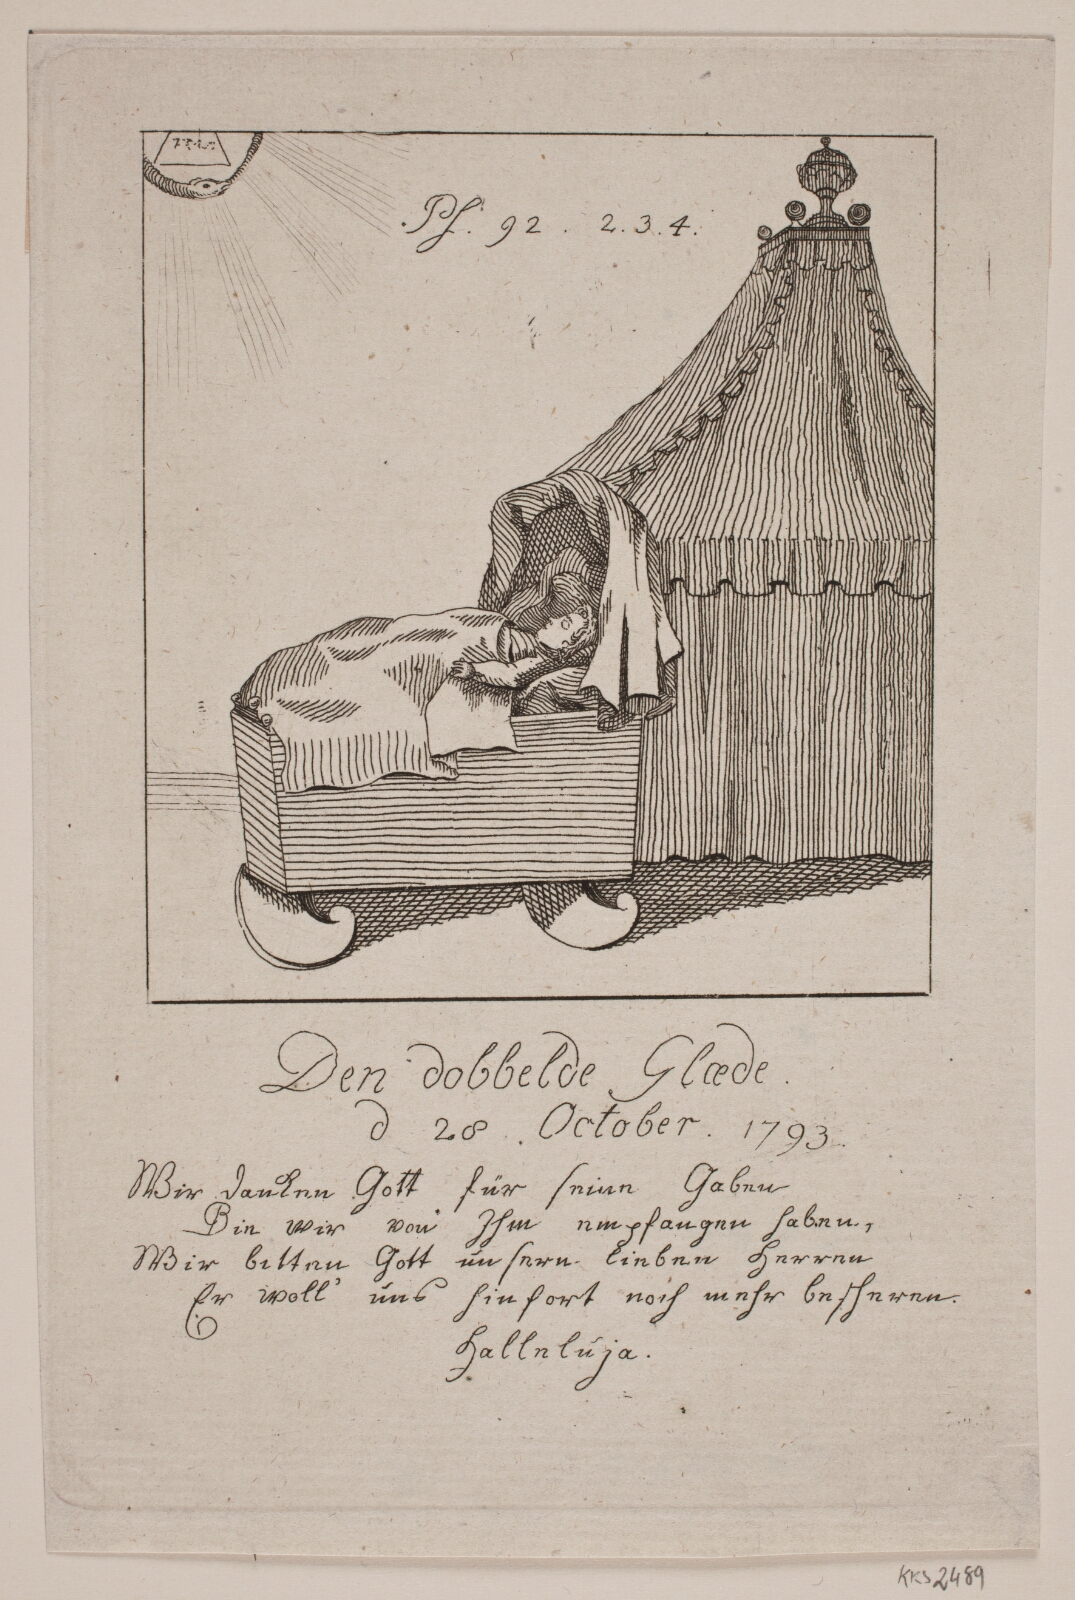 Ps. 92. 2.3.4.
Den dobbelde Glæde.
d 28. October. 1793.
Wir danken Gott für seine Gaben
Die wir von Ihm empfangen haben,
Wir bitten Gott unsern lieben Herren
Er woll' uns hinfort noch mehr bescheren.
Halleluja.
KKS2489